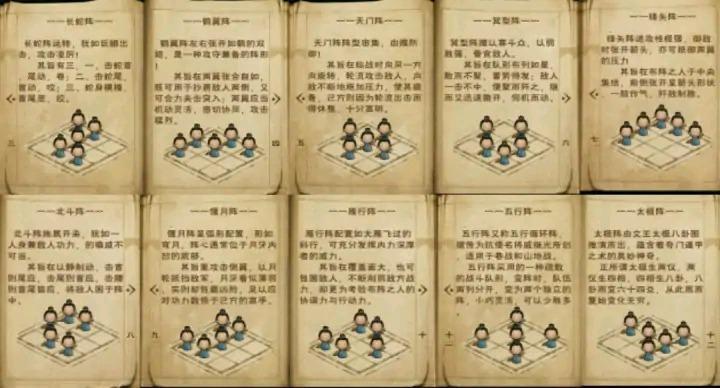 一一长蛇阵一一
长蛇阵运转，犹如巨蟒出
击，攻击凌厉！
其旨有三，一、击蛇首
，尾动，卷；二、击蛇尾，
首动，咬；三、蛇身横撞，
首尾至，绞。
三
一一鹤翼阵一一
鹤翼阵左右张开如鹤的双
翅，是一种攻守兼备的阵形
！
其旨在两翼张合自如，
既可用于抄袭敌人两侧，又
可合力夹击突入；两翼应当
机动灵活，密切协同，攻击
猛烈。
四
一一天门阵一一
天门阵阵型密集，
御！
其旨在临战时向同一方
向旋转，轮流攻击敌人，向
敌不断地施加压力，使其疲
惫，己方则因为轮流出击而
得休整，十分高明。
五
一一箕型阵一一
箕型阵擅以寡斗众，以弱
胜强，蚕食敌人。
其旨在队形布列如星，
散而不聚，蓄势待发；敌人
一击不中，便聚而歼之，继
而又迅速撤开，伺机而动。
六
一一锋头阵一一
锋头阵进攻性极强，御敌
时张开箭头，亦可抵御两翼
的压力
其旨在布阵之人于中央
集结，前侧张开呈箭头形状
，一鼓作气，歼敌制胜。
七
一一北斗阵一一
北斗阵施展开来，犹如一
人身兼数人功力，的确威不
可当。
其旨以静制动，击首
则尾应，击尾则首应，击腰
则首尾皆应，将敌人困于阵
中。
八
一一偃月阵一一
偃月阵呈弧形配置，形如
弯月，阵心通常位于月牙内
凹的底部。
其旨重攻击侧翼，以月
轮抵挡敌军，月牙看似薄弱
，实则却包藏凶险，足以应
对功力数倍于己方的高手。
九
一一雁行阵一一
雁行阵配置如大雁飞过的
斜行，可充分发挥内力深厚
者的威力。
其旨在覆盖面大，也可
包围敌人，不断削弱敌方战
力，却更为考验布阵之人的
协调力与行动力。
十
一一五行阵一一
五行阵又称五行循环阵，
据传为抗倭名将戚继光所创
，适用于巷战和山地战。
五行阵采用的一种疏散
的战斗队形，变阵时，队伍
两列分开，变为两个独立的
阵，小巧灵活，可以少胜多
。
十一
一一太极阵一一
太极阵由文王太极八卦图
推演而出，蕴含着奇门遁甲
之术的奥妙神奇。
正所谓太极生两仪，两
仪生四相，四相生八卦，八
卦而变六十四爻，从此周而
复始变化无穷。
十二